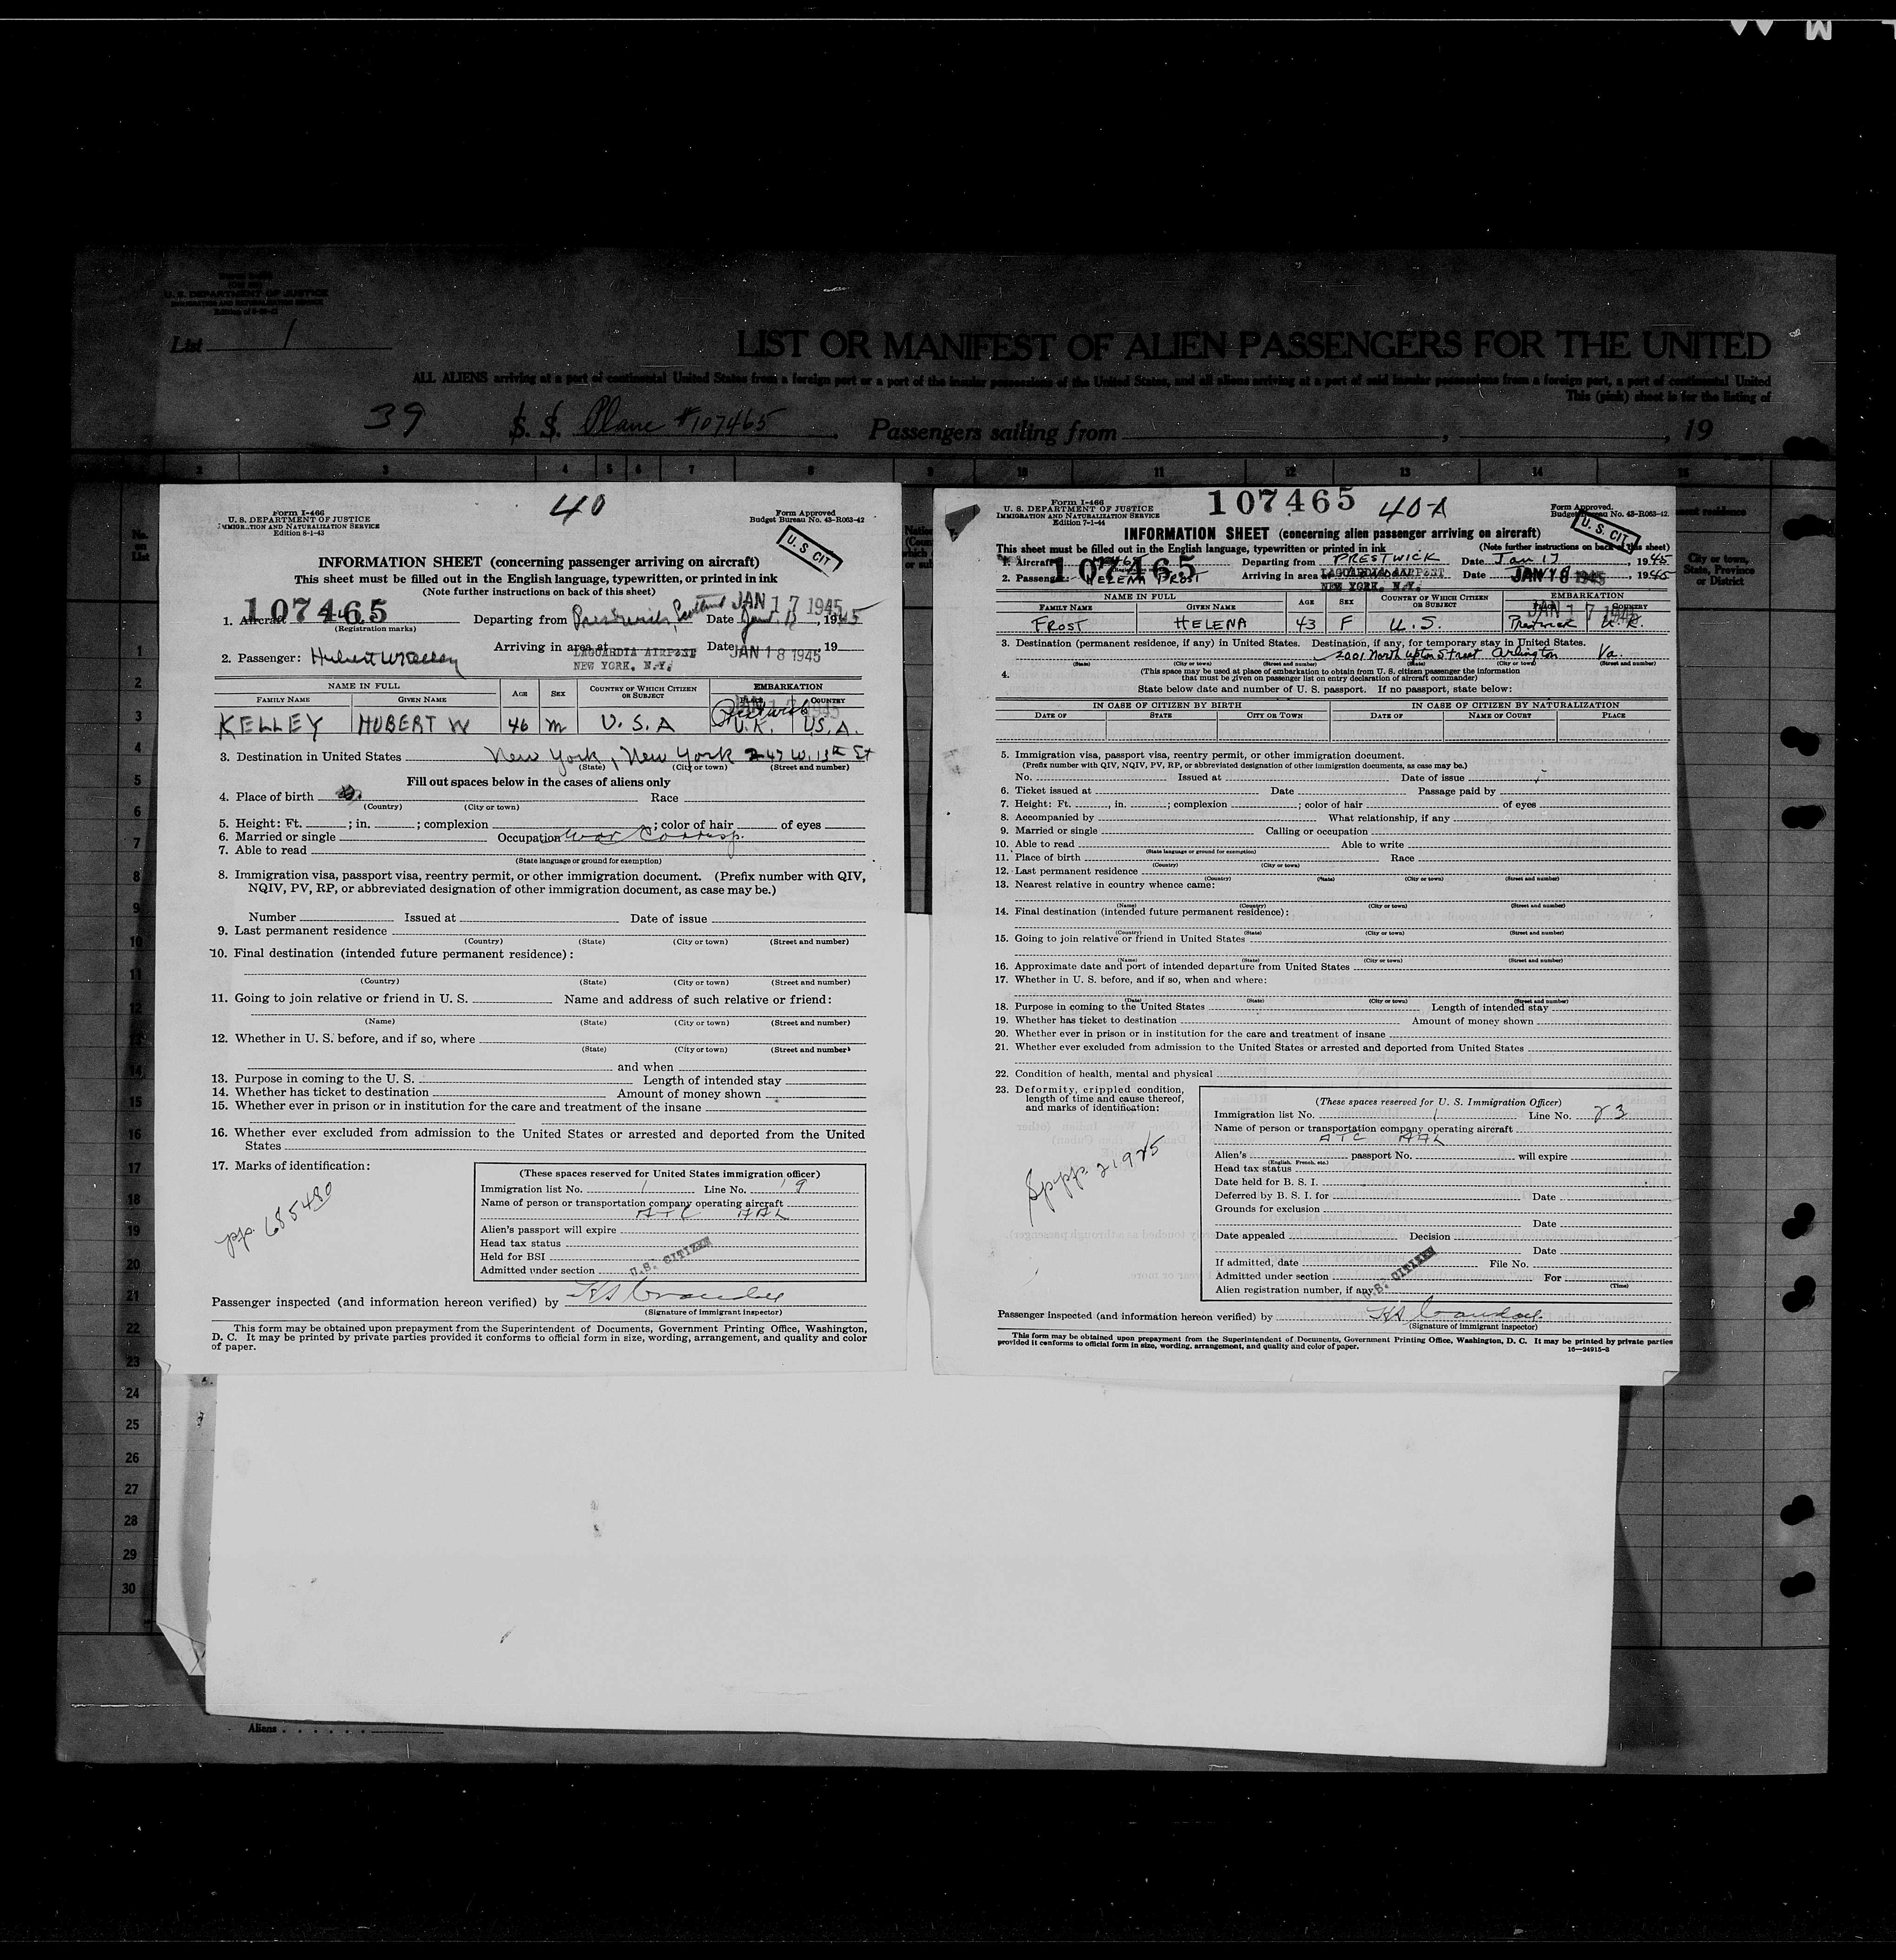 U. S. DEPARTMENT OF JUSTICE
List 1
LIST OR MANIFEST OF ALIEN PASSENGERS FOR THE UNITED
ALL ALIENS arriving at a port of continental United States from a foreign port or a port of the insular possessions of the United States, and all aliens arriving at a port of said insular possessions from a foreign port, a port of continental United
This (pink) sheet is for the listing of
39 S. S. Plane #107465 Passengers sailing from , , 19
2 3 4 5 6 7 8 9 10 11 12 13 14 15
No. on List
City or town, State, Province or District
40
Form I-466
U. S. DEPARTMENT OF JUSTICE
IMMIGRATION AND NATURALIZATION SERVICE
Edition 8-1-43
Form Approved
Budget Bureau No. 43-R063-42
U. S. CIT
INFORMATION SHEET (concerning passenger arriving on aircraft)
This sheet must be filled out in the English language, typewritten, or printed in ink
(Note further instructions on back of this sheet)
1. Aircraft 107465 Departing from Prestwick, Scotland Date JAN 17 1945, 1945
(Registration marks)
Arriving in area at LAGUARDIA AIRPORT Date JAN 18 1945, 19
NEW YORK, N.Y.
2. Passenger: Hubert W Kelley
NAME IN FULL AGE SEX COUNTRY OF WHICH CITIZEN OR SUBJECT EMBARKATION
FAMILY NAME GIVEN NAME PLACE COUNTRY
KELLEY HUBERT W 46 M U.S.A Prestwick U.K. U.S.A.
3. Destination in United States New York, New York 247 W. 13th St
(State) (City or town) (Street and number)
Fill out spaces below in the cases of aliens only
4. Place of birth Race
(Country) (City or town)
5. Height: Ft. ; in. ; complexion ; color of hair of eyes
6. Married or single Occupation War Corresp.
7. Able to read
(State language or ground for exemption)
8. Immigration visa, passport visa, reentry permit, or other immigration document. (Prefix number with QIV,
NQIV, PV, RP, or abbreviated designation of other immigration document, as case may be.)
Number Issued at Date of issue
9. Last permanent residence
(Country) (State) (City or town) (Street and number)
10. Final destination (intended future permanent residence):
(Country) (State) (City or town) (Street and number)
11. Going to join relative or friend in U. S. Name and address of such relative or friend:
(Name) (State) (City or town) (Street and number)
12. Whether in U. S. before, and if so, where
(State) (City or town) (Street and number)
and when
13. Purpose in coming to the U. S. Length of intended stay
14. Whether has ticket to destination Amount of money shown
15. Whether ever in prison or in institution for the care and treatment of the insane
16. Whether ever excluded from admission to the United States or arrested and deported from the United
States
17. Marks of identification:
pp. 685480
(These spaces reserved for United States immigration officer)
Immigration list No. 1 Line No. 19
Name of person or transportation company operating aircraft
ATC AAL
Alien's passport will expire
Head tax status
Held for BSI
Admitted under section U.S. CITIZEN
Passenger inspected (and information hereon verified) by
(Signature of immigrant inspector)
This form may be obtained upon prepayment from the Superintendent of Documents, Government Printing Office, Washington,
D. C. It may be printed by private parties provided it conforms to official form in size, wording, arrangement, and quality and color
of paper.
107465 40-A
Form I-466
U. S. DEPARTMENT OF JUSTICE
IMMIGRATION AND NATURALIZATION SERVICE
Edition 7-1-44
Form Approved.
Budget Bureau No. 43-R063-42.
U. S. CIT
INFORMATION SHEET (concerning alien passenger arriving on aircraft)
This sheet must be filled out in the English language, typewritten or printed in ink (Note further instructions on back of this sheet)
1. Aircraft 107465 Departing from PRESTWICK Date Jan 17, 1945
2. Passenger HELENA FROST Arriving in area LAGUARDIA AIRPORT Date JAN 18 1945, 1945
NEW YORK, N.Y.
NAME IN FULL AGE SEX COUNTRY OF WHICH CITIZEN OR SUBJECT EMBARKATION
FAMILY NAME GIVEN NAME PLACE COUNTRY
JAN 17 1945
FROST HELENA 43 F U.S. Prestwick U.K.
3. Destination (permanent residence, if any) in United States. Destination, if any, for temporary stay in United States.
2001 North Upton Street Arlington Va.
(State) (City or town) (Street and number) (State) (City or town) (Street and number)
4. (This space may be used at place of embarkation to obtain from U. S. citizen passenger the information
that must be given on passenger list on entry declaration of aircraft commander)
State below date and number of U. S. passport. If no passport, state below:
IN CASE OF CITIZEN BY BIRTH IN CASE OF CITIZEN BY NATURALIZATION
DATE OF STATE CITY OR TOWN DATE OF NAME OF COURT PLACE
5. Immigration visa, passport visa, reentry permit, or other immigration document.
(Prefix number with QIV, NQIV, PV, RP, or abbreviated designation of other immigration documents, as case may be.)
No. Issued at Date of issue
6. Ticket issued at Date Passage paid by
7. Height: Ft. , in. ; complexion ; color of hair of eyes
8. Accompanied by What relationship, if any
9. Married or single Calling or occupation
10. Able to read Able to write
(State language or ground for exemption)
11. Place of birth Race
(Country) (City or town)
12. Last permanent residence
(Country) (State) (City or town) (Street and number)
13. Nearest relative in country whence came:
(Name) (Country) (City or town) (Street and number)
14. Final destination (intended future permanent residence):
(Country) (State) (City or town) (Street and number)
15. Going to join relative or friend in United States
(Name) (State) (City or town) (Street and number)
16. Approximate date and port of intended departure from United States
17. Whether in U. S. before, and if so, when and where:
(Date) (State) (City or town) (Street and number)
18. Purpose in coming to the United States Length of intended stay
19. Whether has ticket to destination Amount of money shown
20. Whether ever in prison or in institution for the care and treatment of insane
21. Whether ever excluded from admission to the United States or arrested and deported from United States
22. Condition of health, mental and physical
23. Deformity, crippled condition,
length of time and cause thereof,
and marks of identification:
Sp pp. 21925
(These spaces reserved for U. S. Immigration Officer)
Immigration list No. 1 Line No. 23
Name of person or transportation company operating aircraft
ATC AAL
Alien's passport No. will expire
(English, French, etc.)
Head tax status
Date held for B. S. I.
Deferred by B. S. I. for Date
Grounds for exclusion
Date
Date appealed Decision
Date
If admitted, date File No.
Admitted under section For
(Time)
Alien registration number, if any U.S. CITIZEN
Passenger inspected (and information hereon verified) by
(Signature of immigrant inspector)
This form may be obtained upon prepayment from the Superintendent of Documents, Government Printing Office, Washington, D. C. It may be printed by private parties
provided it conforms to official form in size, wording, arrangement, and quality and color of paper.
16—24915-3
1
2
3
4
5
6
7
8
9
10
11
12
13
14
15
16
17
18
19
20
21
22
23
24
25
26
27
28
29
30
Aliens